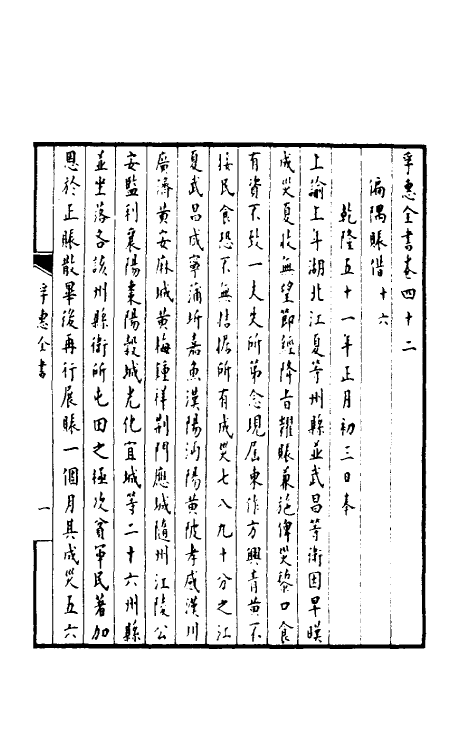 孚惠全書卷四十二
偏隅賑借十六
乾隆五十一年正月初三日奉
上諭上年湖北江夏等州縣並武昌等衛因旱暵
成災夏收無望節經降旨蠲賑兼施俾災黎口食
有資不致一夫失所第念現屆東作方興青黃不
接民食恐不無拮据所有成災七八九十分之江
夏武昌咸寧蒲圻嘉魚漢陽沔陽黃陂孝感漢川
廣濟黃安麻城黃梅鍾祥荆門應城隨州江陵公
安監利襄陽棗陽穀城光化宜城等二十六州縣
並坐落各該州縣衛所屯田之極次貧軍民著加
恩於正賑散畢後再行展賑一個月其成災五六
孚惠全書
一